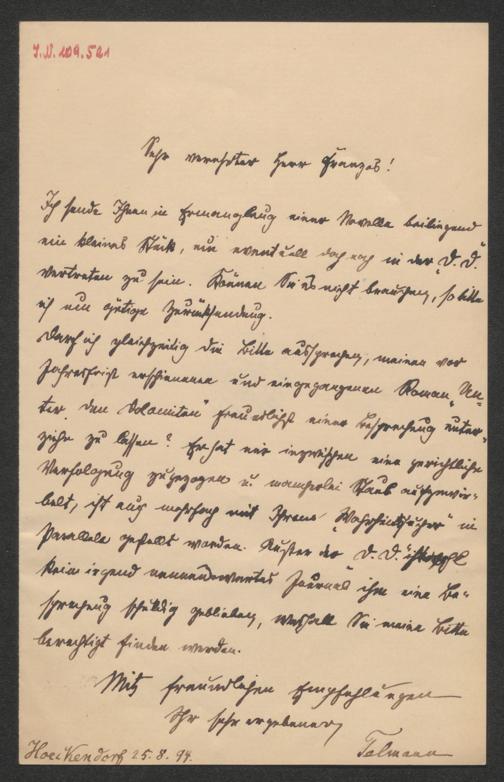 I.N. 109.521
Sehr verehrter Herr Franzos!
Ich sende Ihnen in Ermanglung einer Novelle beiliegend
ein kleines Stück, um eventuell doch noch in der „D. D.“
vertreten zu sein. Können Sie es nicht brauchen, so bitte
ich um gütige Zurücksendung.
Darf ich gleichzeitig die Bitte aussprechen, meinen vor
Jahresfrist erschienenen und eingegangenen Roman „Un-
ter den Dolomiten“ freundlichst einer Besprechung unter-
ziehen zu lassen? Er hat mir inzwischen eine gerichtliche
Verfolgung zugezogen u mancherlei Staub aufgewir-
belt, ist auch mehrfach mit Ihrem „Wahrheitsucher“ in
Parallele gestellt worden. Außer der D. D. ist wohl
kein irgend nennenswertes Journal ihm eine Be-
sprechung schuldig geblieben, weshalb Sie meine Bitte
berechtigt finden werden.
Mit freundlichen Empfehlungen
Ihr sehr ergebener
Hoeckendorf 25.8.94. Telmann